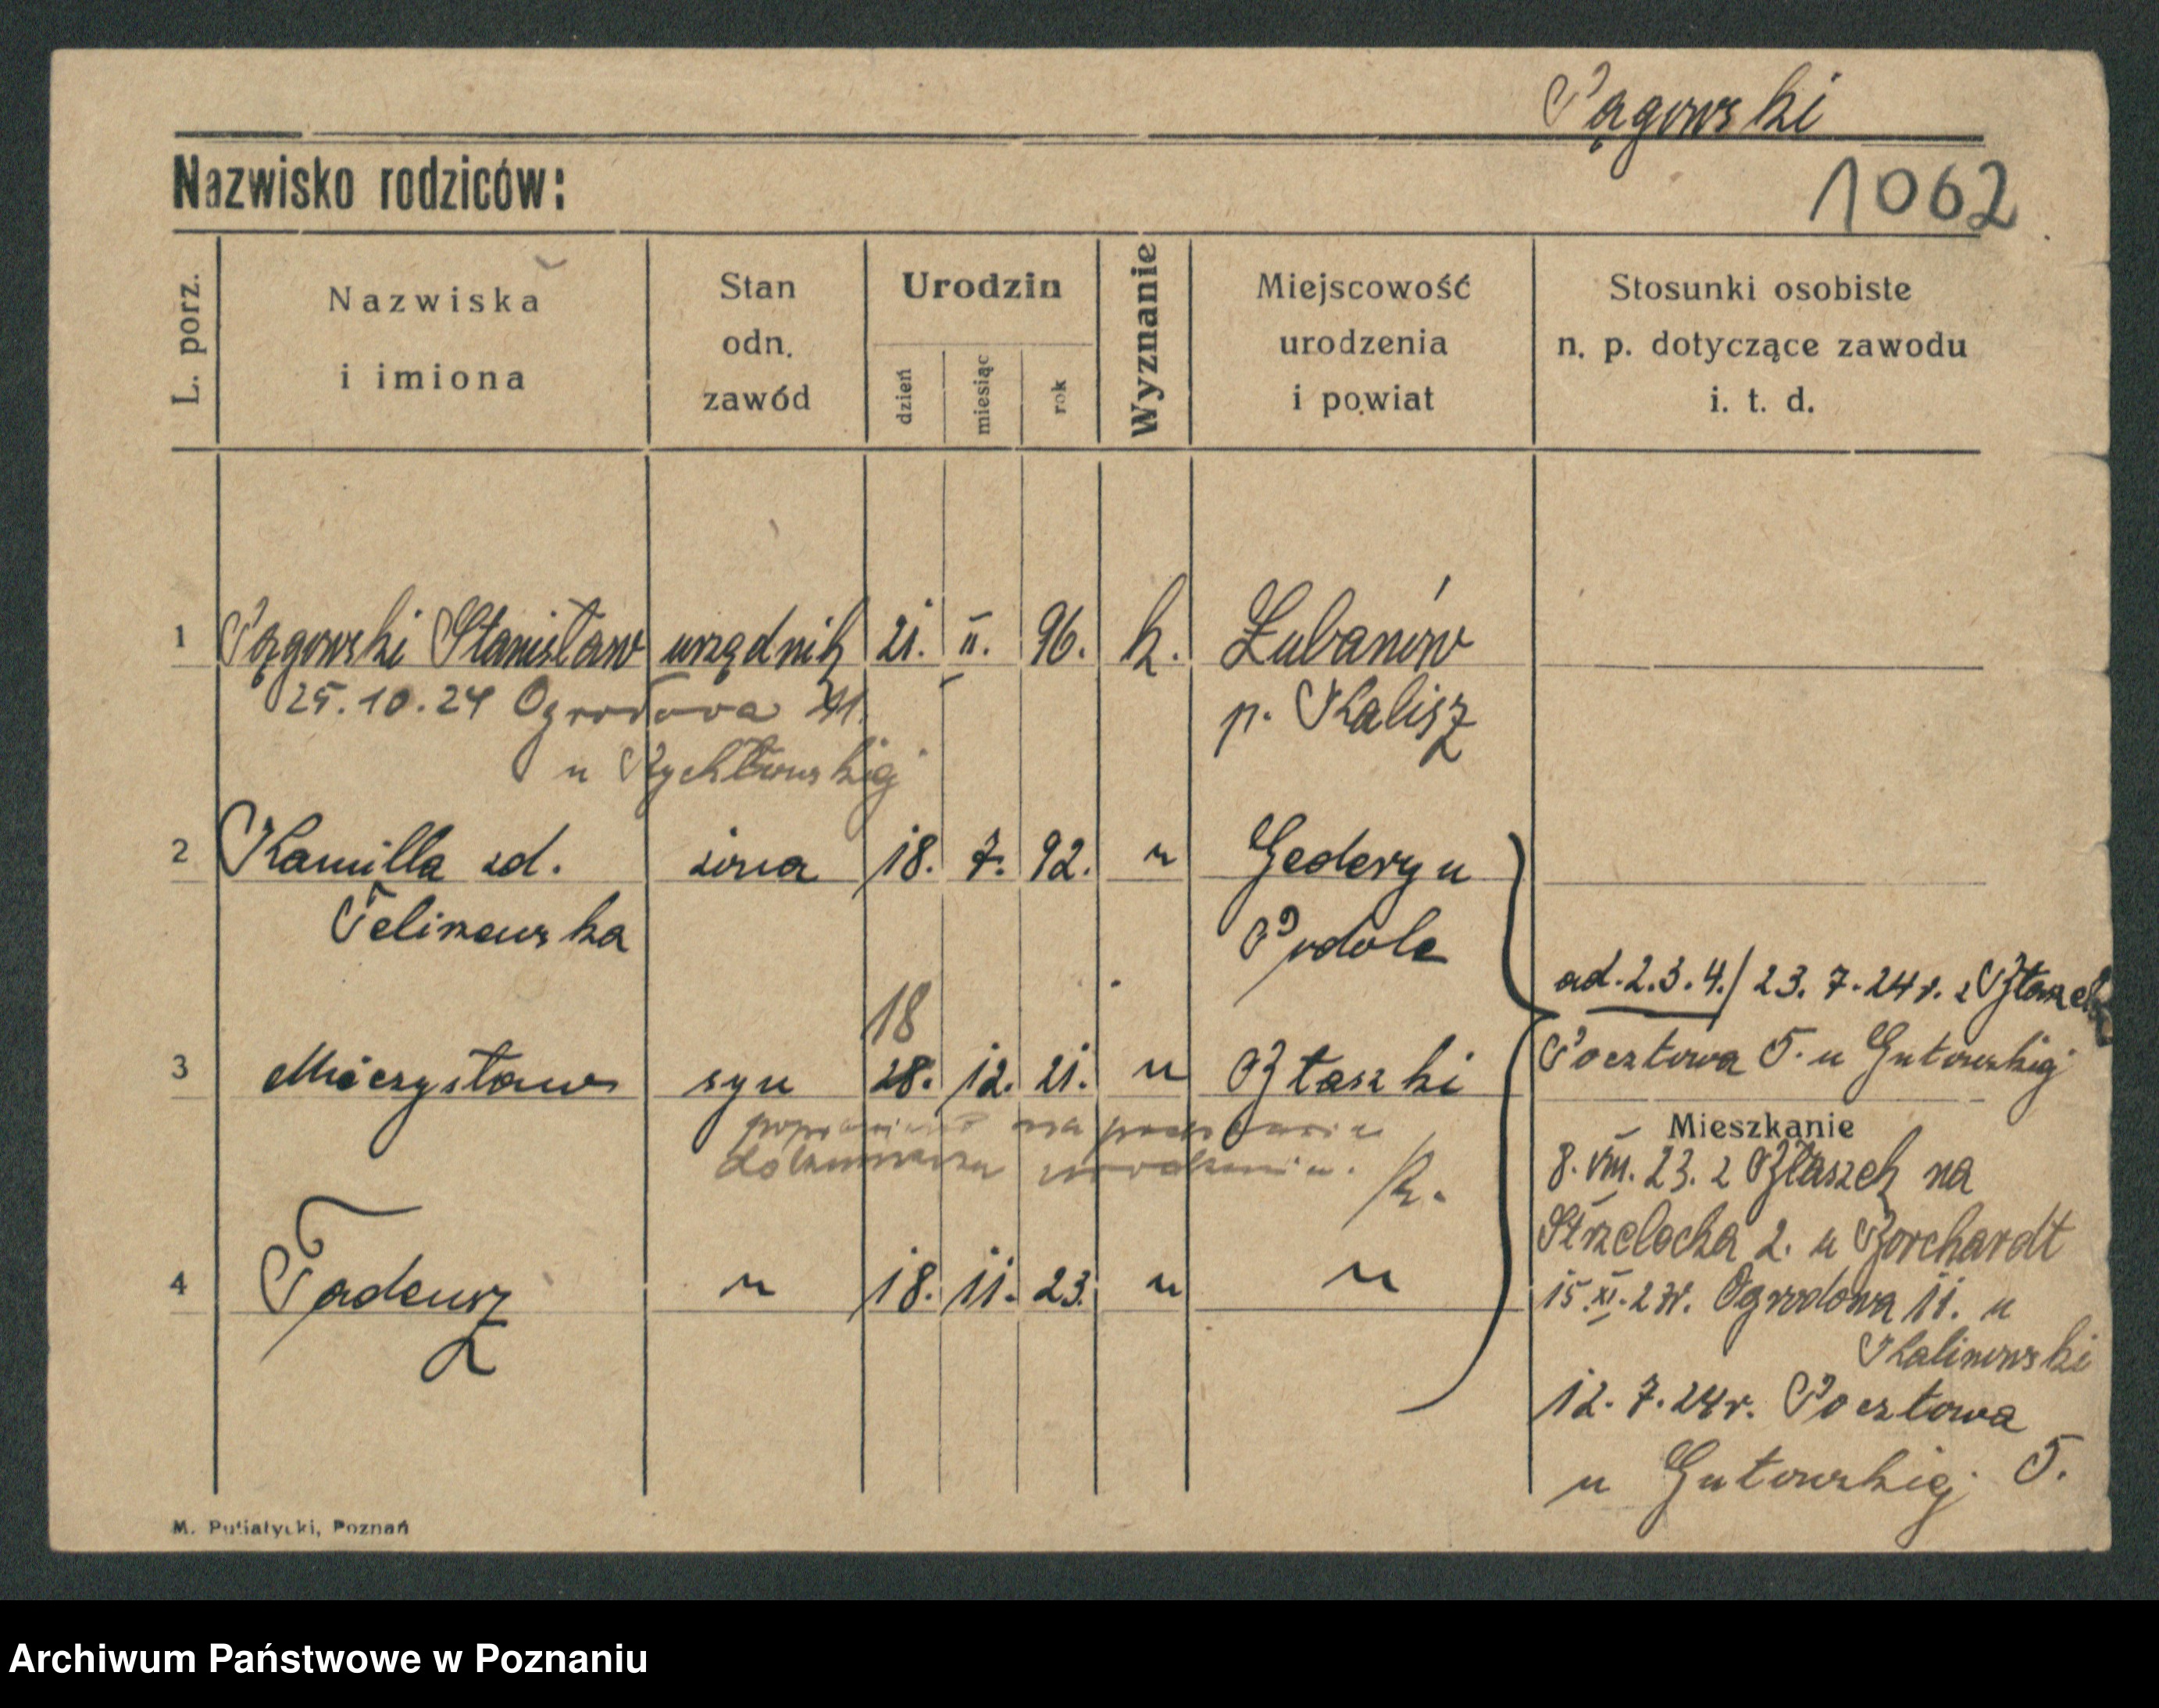 Pągowski
Nazwisko rodziców:
1062
L. porz.
Nazwiska
i imiona
Stan
odn.
zawód
Urodzin
dzień
miesiąc
rok
Wyznanie
Miejscowość
urodzenia
i powiat
Stosunki osobiste
n. p. dotyczące zawodu
i. t. d.
1 Pągowski Stanisław urzędnik 21. II. 96. k. Łubanów
25.10.24 Ogrodowa p. Kalisz
u Rychłowskiej
2 Kamilla zd. żona 18. 7. 92. " Gederyn
Felinowska Podole
ad. 2.3.4./ 23. 7. 24 r. z Błaszek
Pocztowa 5. u Gutowskiej
18
3 Mieczysław syn 28. 12. 21. " Błaszki
poprawiono na podstawie
dokumentu urodzenia.
Mieszkanie
8. VIII. 23. z Błaszek na
Strzelecka 2. u Borchardt
4 Tadeusz " 18. 11. 23. " "
15. XI. 23r. Ogrodowa 11. u
Kalinowski
12. 7. 24r. Pocztowa
u Gutowskiej 5.
M. Putiatycki, Poznań
Archiwum Państwowe w Poznaniu